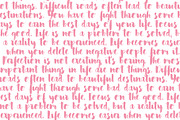 not things. Difficult roads often lead to beautiful
destinations. You have to fight through some b
days to earn the best days of your life. Focus
the good. Life is not a problem to be solved, b
a reality to be experienced. Life becomes easier
when you delete the negative people from it.
Perfection is not exciting it's boring. The most
important things in life are not things. Difficult
roads often lead to beautiful destinations. You
have to fight through some bad days to earn t
best days of your life. Focus on the good. Life
not a problem to be solved, but a reality to b
experienced. Life becomes easier when you delet